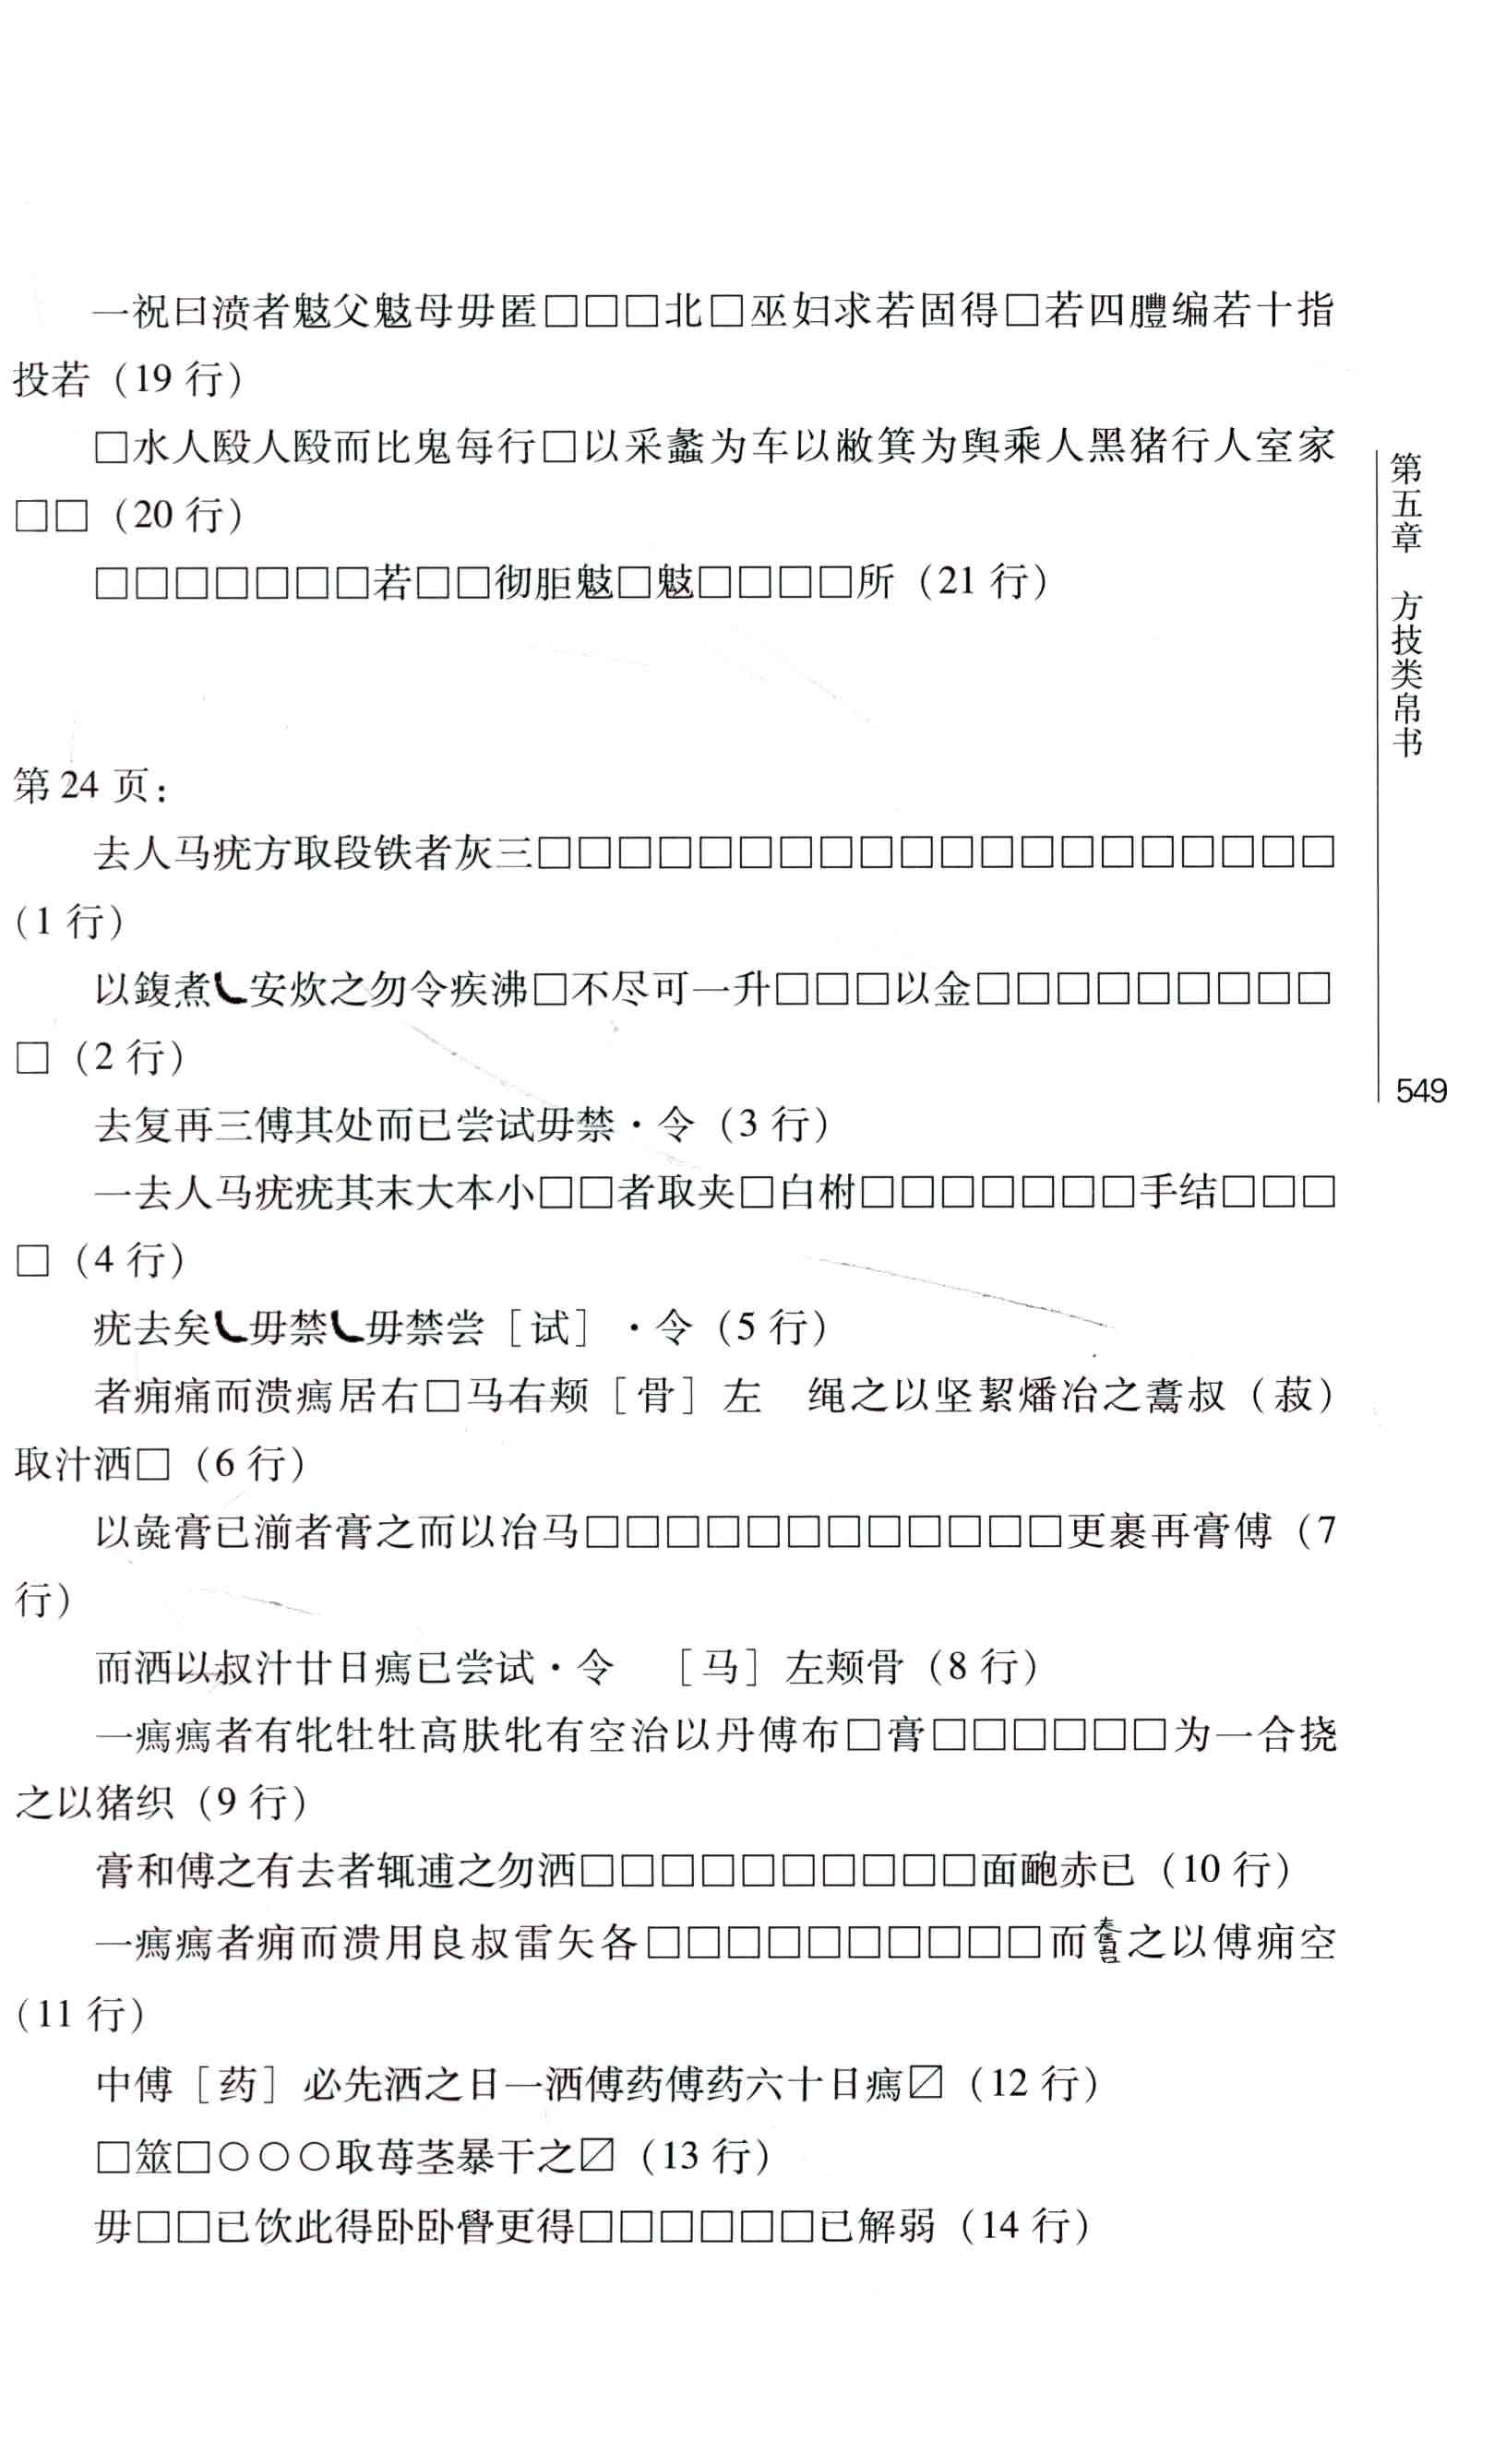 一祝曰渍者鬾父鬾母毋匿□□□北□巫妇求若固得□若四軆编若十指
投若（19 行）
□水人殹人殹而比鬼每行□以采蠡为车以敝箕为舆乘人黑猪行人室家
□□（20 行）
□□□□□□□若□□彻胆鬾□鬾□□□□所（21 行）
第 24 页：
去人马疣方取段铁者灰三□□□□□□□□□□□□□□□□□□□□
（1 行）
以鍑煮㇄安炊之勿令疾沸□不尽可一升□□□以金□□□□□□□□□
□（2 行）
去复再三傅其处而已尝试毋禁·令（3 行）
一去人马疣疣其末大本小□□者取夹□白柎□□□□□□□手结□□□
□（4 行）
疣去矣㇄毋禁㇄毋禁尝［试］·令（5 行）
者痈痛而溃瘑居右□马右颊［骨］左　绳之以坚絜燔冶之煮叔（菽）
取汁洒□（6 行）
以彘膏已湔者膏之而以冶马□□□□□□□□□□□□更裹再膏傅（7
行）
而洒以叔汁廿日瘑已尝试·令　［马］左颊骨（8 行）
一瘑瘑者有牝牡牡高肤牝有空治以丹傅布□膏□□□□□□为一合挠
之以猪织（9 行）
膏和傅之有去者辄逋之勿洒□□□□□□□□□□面靤赤已（10 行）
一瘑瘑者痈而溃用良叔雷矢各□□□□□□□□□□而之以傅痈空
（11 行）
中傅［药］必先洒之日一洒傅药傅药六十日瘑〼（12 行）
□筮□○○○取苺茎暴干之〼（13 行）
毋□□已饮此得卧卧觉更得□□□□□□已解弱（14 行）
第五章　方技类帛书
549